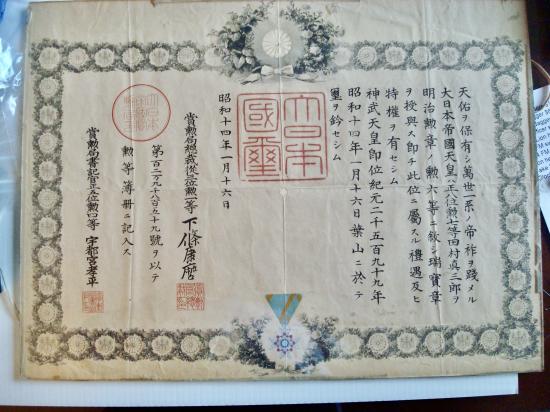 天佑ヲ保有シ萬世一系ノ帝祚ヲ踐メル
大日本帝國天皇ハ正八位勲七等田村真三郎ヲ
明治勲章ノ勲六等ニ敘シ瑞寶章
ヲ授與ス即チ此位ニ屬スル禮遇及ヒ
特權ヲ有セシム
神武天皇即位紀元二千五百九十九年
昭和十四年一月十六日葉山ニ於テ
璽ヲ鈐セシム
大日本
國璽
昭和十四年一月十六日
賞勲局總裁從三位勲一等下條康麿
第百二万九千八百五十九號ヲ以テ
勲等簿冊ニ記入ス
賞勲局書記官正五位勲四等宇都宮孝平